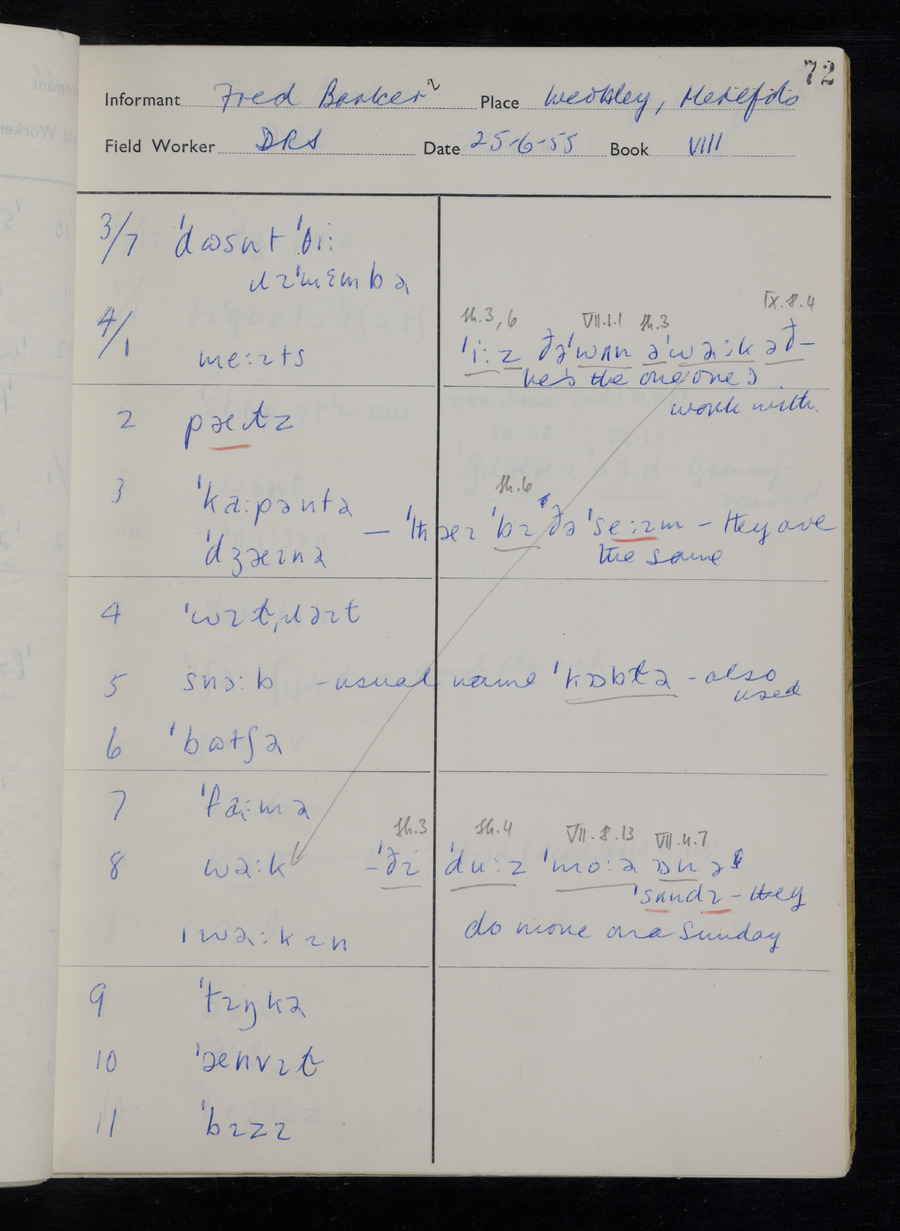 72
Informant Fred Barker Place Weobley, Herefds
Field Worker DRS Date 25-6-55 Book VIII
3/7 ˈdɷsnt ˈðiː
ɹɪˈmɛmbə
4/1 meːɪts
sh.3, 6 VII.1.1 sh.3 IX.8.4
ˈiːz ðəˈwʌn əˈwəːk əð –
he's the one one's
work with.
2 pæɪtz
3 ˈkaːpəntə
sh.6
ˈdʒæɪnə – ˈðæɪ ˈbɪ ðə ˈseːɪm – they are
the same
4 ˈwɪtˌɹəɪt
5 snɔːb – usual name ˈkɒblə – also
used
6 ˈbɷtʃə
7 ˈfaːmə
sh.3 sh.4 VII.8.13 VII.4.7
8 wəːk – ˈðɪ ˈduːz ˈmoːə ɒn ə
ˈsʌndɪ – they
do more on a Sunday
ˈwəːkɪn
9 ˈtɪŋkə
10 ˈænvɪt
11 ˈbɪzɪ